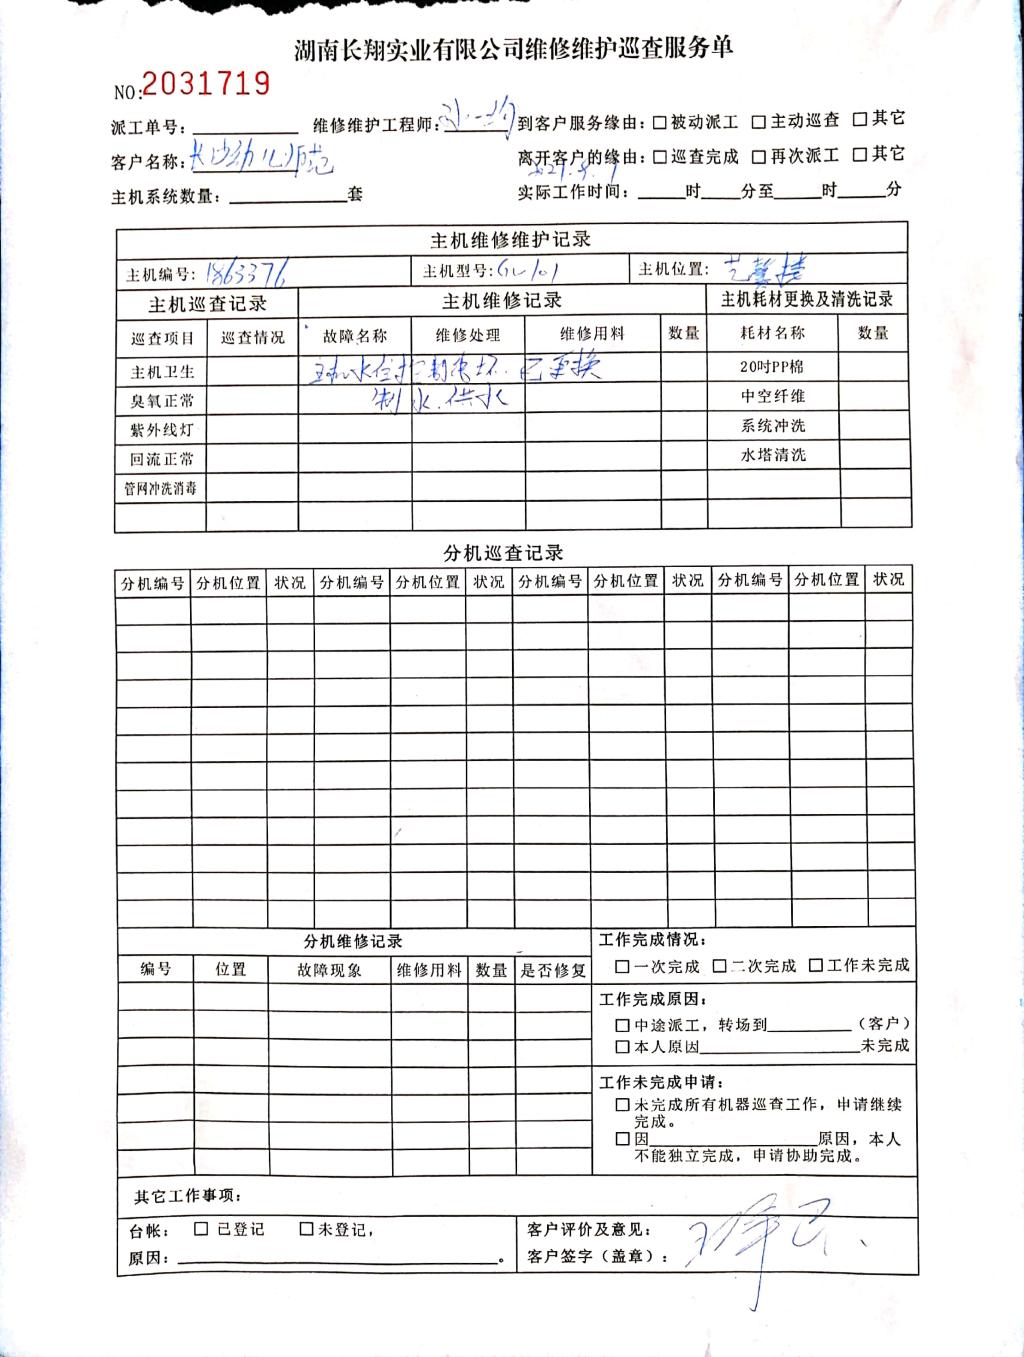 湖南长翔实业有限公司维修维护巡查服务单
NO:2031719
派工单号：________ 维修维护工程师：________ 到客户服务缘由：□被动派工 □主动巡查 □其它
客户名称：长沙幼儿师范 离开客户的缘由：□巡查完成 □再次派工 □其它
主机系统数量：________套 实际工作时间：____时____分至____时____分
主机维修维护记录
主机编号：1863376 主机型号：GL101 主机位置：艺馨楼
主机巡查记录 主机维修记录 主机耗材更换及清洗记录
巡查项目 巡查情况 故障名称 维修处理 维修用料 数量 耗材名称 数量
主机卫生 主机水位控制电坏．已更换 20吋PP棉
臭氧正常 制水．供水 中空纤维
紫外线灯 系统冲洗
回流正常 水塔清洗
管网冲洗消毒
分机巡查记录
分机编号 分机位置 状况 分机编号 分机位置 状况 分机编号 分机位置 状况 分机编号 分机位置 状况
分机维修记录 工作完成情况：
编号 位置 故障现象 维修用料 数量 是否修复 □一次完成 □二次完成 □工作未完成
工作完成原因：
□中途派工，转场到________（客户）
□本人原因________________未完成
工作未完成申请：
□未完成所有机器巡查工作，申请继续
完成。
□因________________原因，本人
不能独立完成，申请协助完成。
其它工作事项：
台帐：□已登记 □未登记，
原因：________________________________。
客户评价及意见：
客户签字（盖章）：